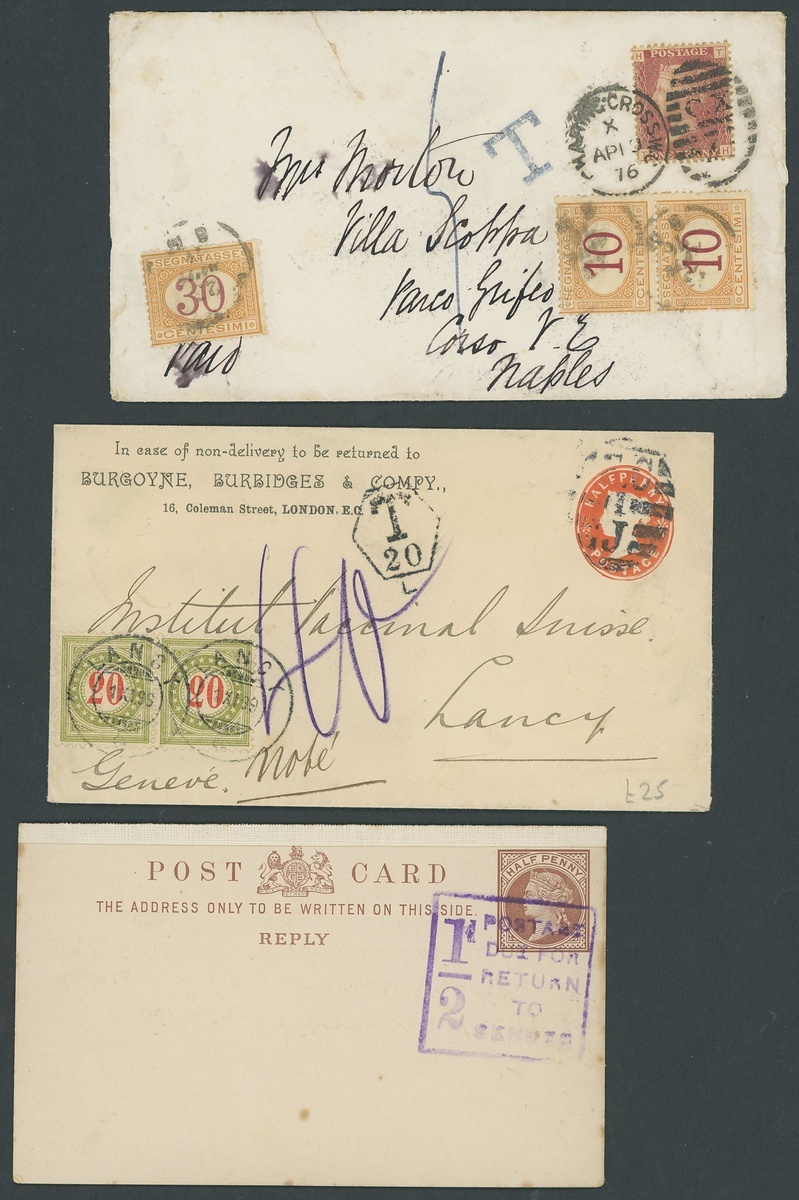 POSTAGE
H T
H
CHARING-CROSS.W.C
X
AP 19
76
C.X
T
Mrs Morton
Villa Scoppa
Parco Grifeo
Corso V. E
Naples
Paid
SEGNATASSE
30
CENTESIMI
SEGNATASSE
10
CENTESIMI
SEGNATASSE
10
CENTESIMI
In case of non-delivery to be returned to
BURGOYNE, BURBIDGES & COMPY.,
16, Coleman Street, LONDON, E.C.
T
20
L
HALFPENNY
POSTAGE
J
Institut Vaccinal Suisse.
Lancy
Genevé. Nobé
20
20
LANCY
LANCY
£25
POST CARD
THE ADDRESS ONLY TO BE WRITTEN ON THIS SIDE.
REPLY
HALF PENNY
1d/2
POSTAGE
DUE FOR
RETURN
TO
SENDER